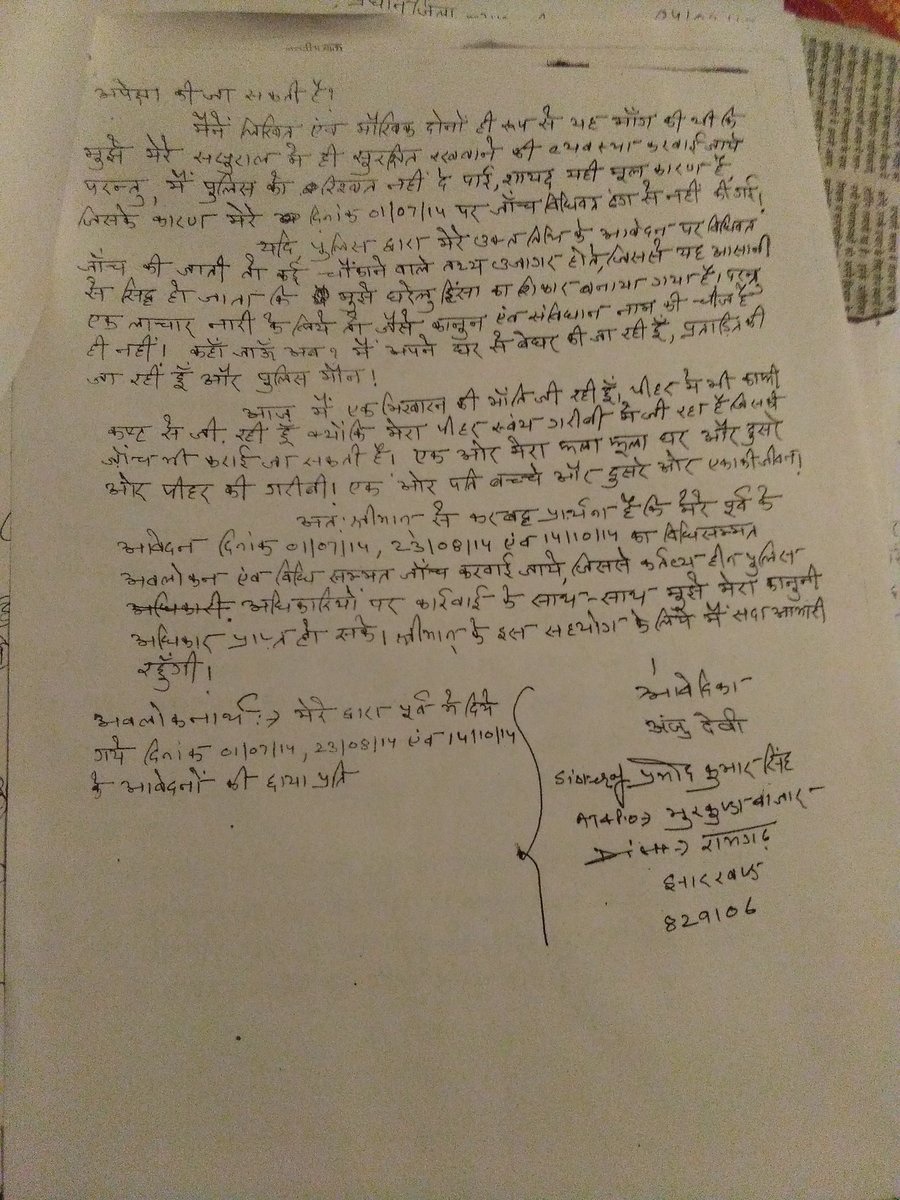 प्रधान जिला
अपेक्षा की जा सकती है?
मैनें लिखित एंव मौखिक दोनों ही रूप से यह माँग की थी कि
मुझे मेरे ससुराल मे ही सुरक्षित रखवाने की व्यवस्था करवाई जाये
परन्तु, मैं पुलिस को रिश्वत नहीं दे पाई, शायद यही मूल कारण है
जिसके कारण मेरे दिनांक 01/07/14 पर जाँच विधिवत ढंग से नहीं की गई।
यदि पुलिस द्वारा मेरे उक्त तिथि के आवेदन पर विधिवत
जाँच की जाती तो कई चौंकाने वाले तथ्य उजागर होते, जिससे यह आसानी
से सिद्ध हो जाता कि मुझे घरेलु हिंसा का शिकार बनाया गया है। परन्तु
एक लाचार नारी के लिये तो जैसे कानून एंव संविधान नाम की चीज है
ही नहीं। कहाँ जाऊँ अब? मैं अपने घर से बेघर की जा रही हूँ, प्रताड़ित की
जा रहीं हूँ और पुलिस मौन!
आज मैं एक भिखारन की भाँति जी रही हूँ। पीहर मे भी काफी
कष्ट से जी रही हूँ क्योंकि मेरा पीहर स्वंय गरीबी मे जी रहा है जिसकी
जाँच भी कराई जा सकती है। एक ओर मेरा फला फूला घर और दुसरे
ओर पीहर की गरीबी। एक ओर पति बच्चे और दुसरे ओर एकाकी जीवन।
अतः श्रीमान् से करबद्ध प्रार्थना है कि मेरे पूर्व के
आवेदन दिनांक 01/07/14, 23/08/14 एंव 14/10/14 का विधिसम्मत
अवलोकन एंव विधि सम्मत जाँच करवाई जाये, जिससे कर्तव्य हीन पुलिस
अधिकारी अधिकारियों पर कार्रवाई के साथ-साथ मुझे मेरा कानुनी
अधिकार प्राप्त हो सके। श्रीमान् के इस सहयोग के लिये मैं सदा आभारी
रहुँगी।
अवलोकनार्थ :→ मेरे द्वारा पूर्व मे दिये
गये दिनांक 01/07/14, 23/08/14 एंव 14/10/14
के आवेदनों की छाया प्रति
आवेदिका
अंजु देवी
प्रमोद कुमार सिंह
At+P.O→ भुरकुण्डा बाजार
Distt→ रामगढ़
झारखण्ड
829106